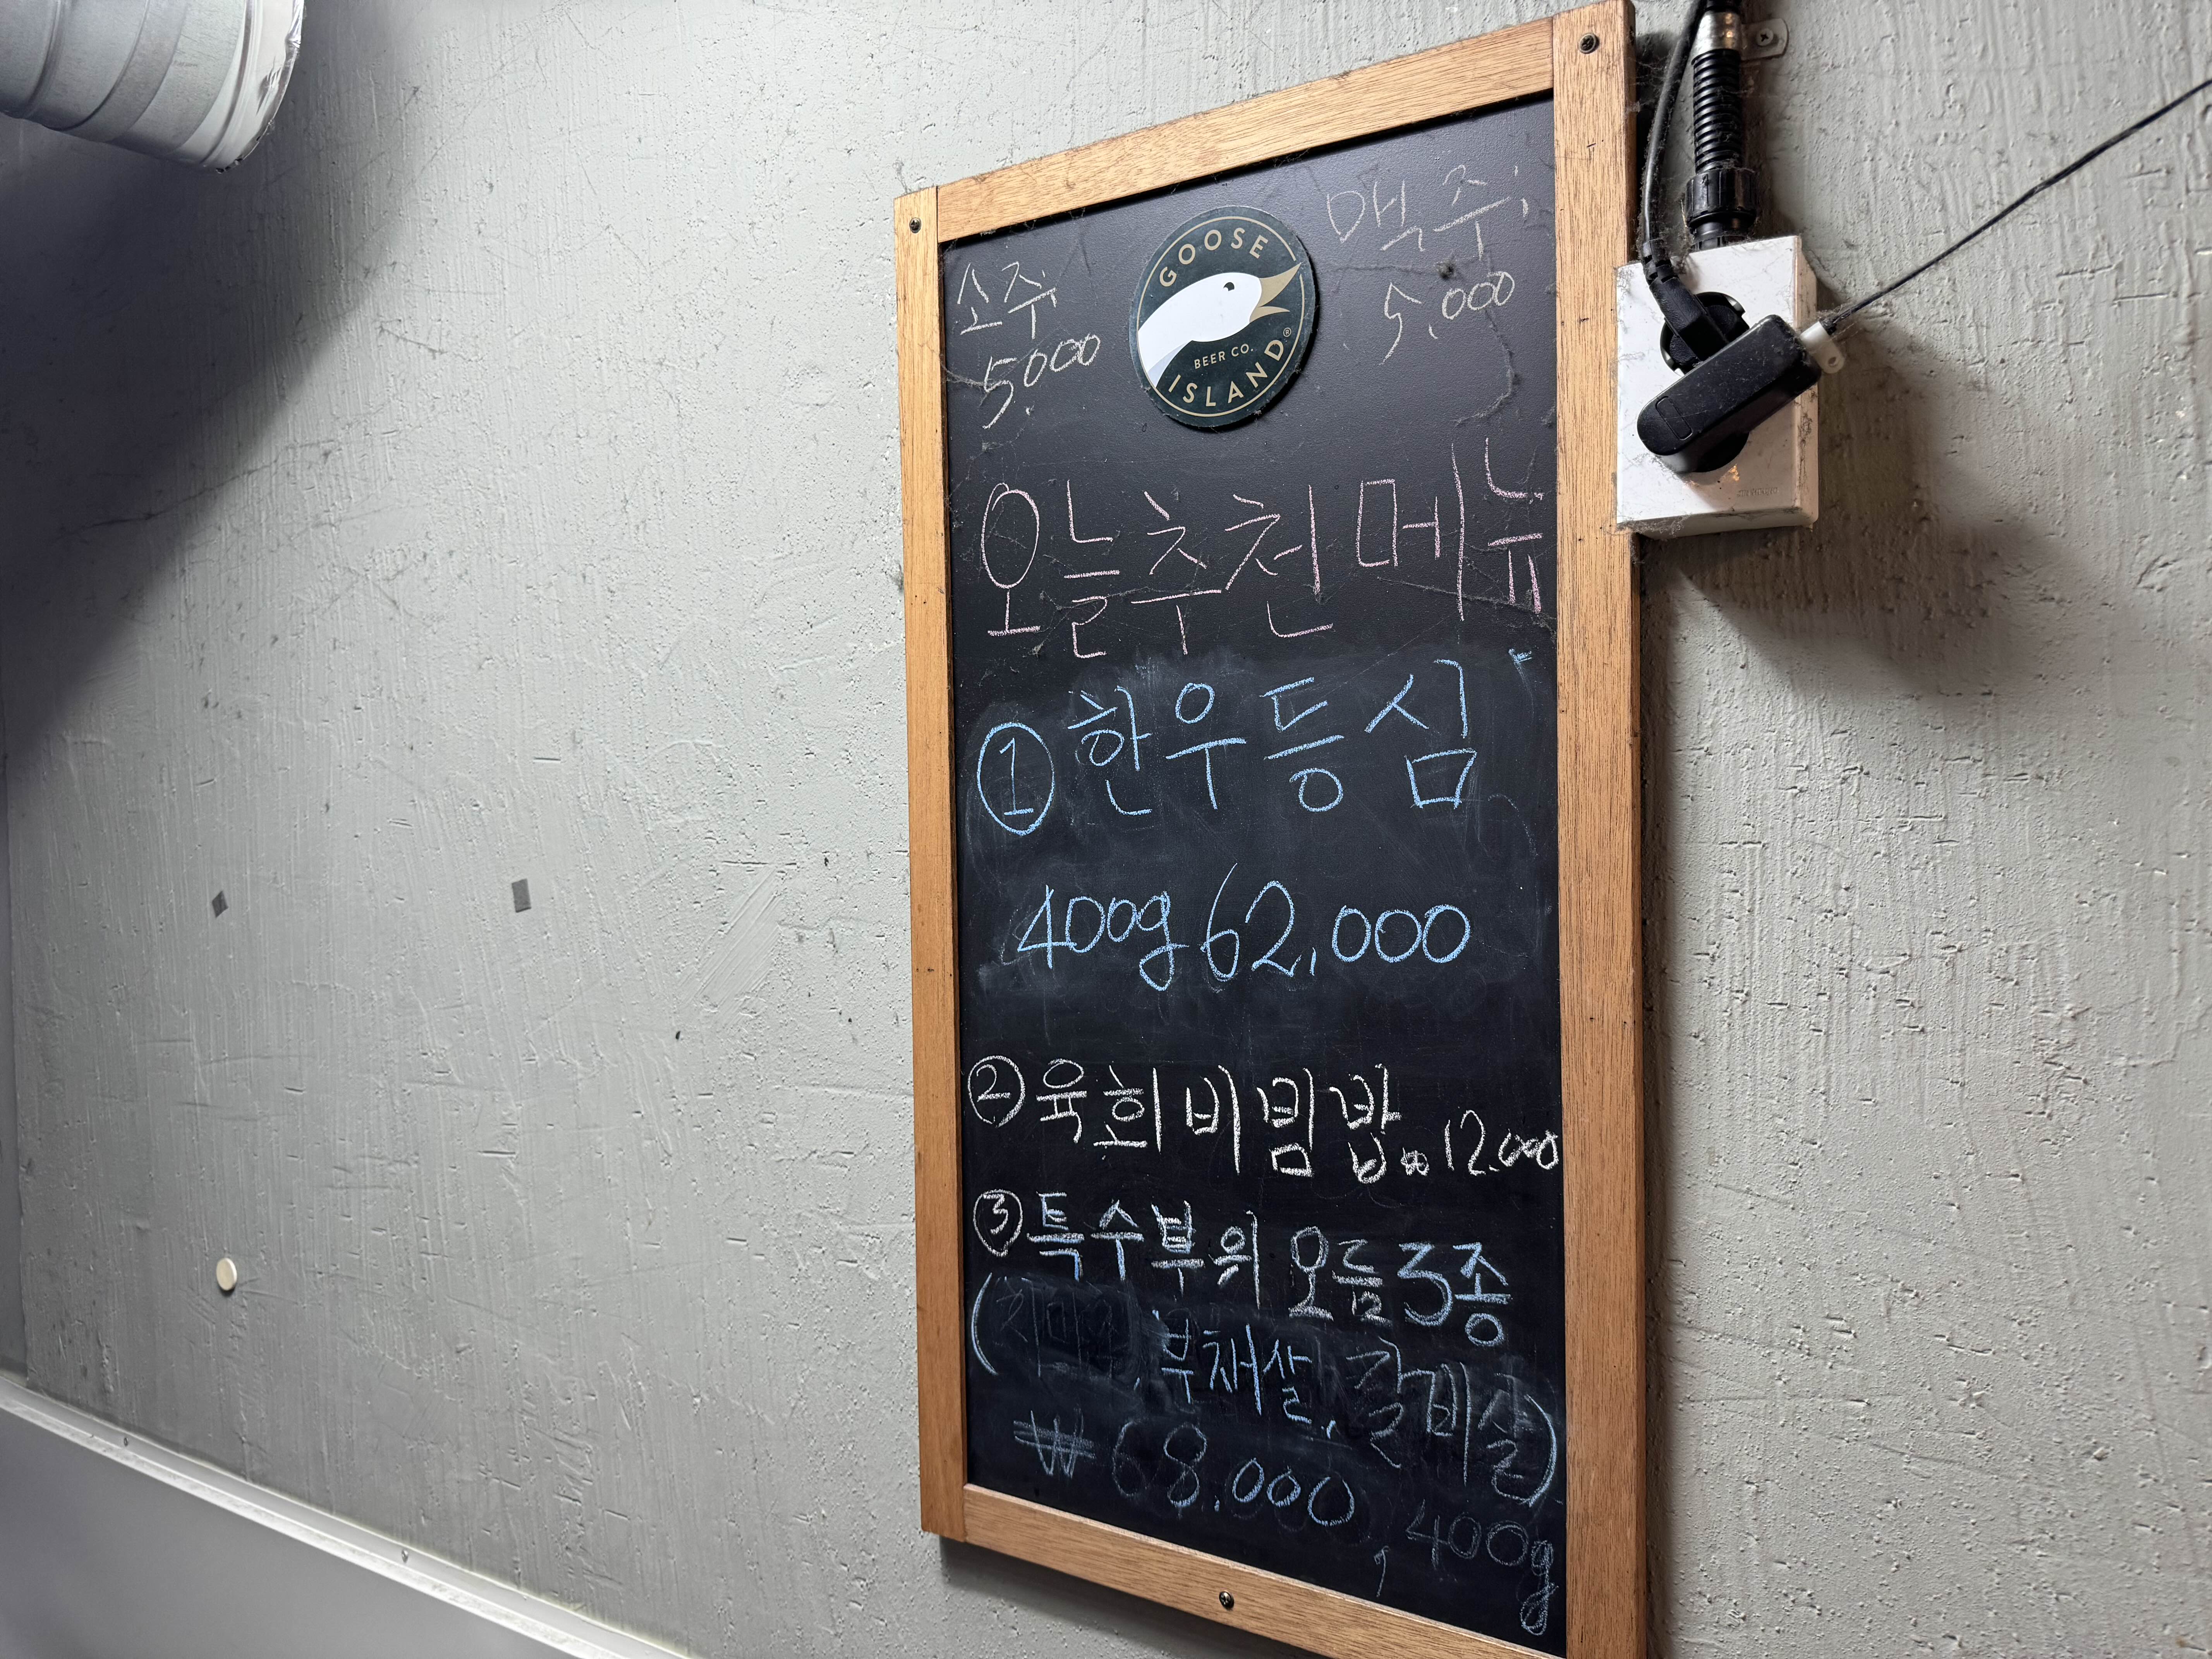 소주;
5000
GOOSE
BEER CO.
ISLAND®
맥주;
5,000
오늘추천메뉴
① 한우등심
400g 62,000
② 육회비빔밥 12.000
③ 특수부위 모듬 3종
( , 부채살, 갈비살)
₩68.000, 400g